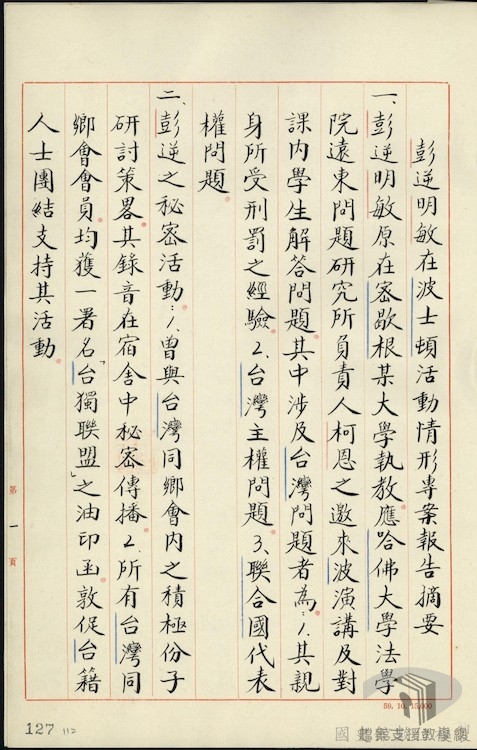 彭逆明敏在波士頓活動情形專案報告摘要
一、彭逆明敏原在密歇根某大學執教應哈佛大學法學
院遠東問題研究所負責人柯恩之邀來波演講及對
課內學生解答問題。其中涉及台灣問題者為：1.其親
身所受刑罰之經驗。2.台灣主權問題。3.聯合國代表
權問題。
二、彭逆之秘密活動：1.曾與台灣同鄉會內之積極份子
研討策畧。其錄音在宿舍中秘密傳播。2.所有台灣同
鄉會會員均獲一署名「台獨聯盟」之油印函。敦促台籍
人士團結支持其活動。
第一頁
59.10.15,000
127
112
國
檔案支援教學網